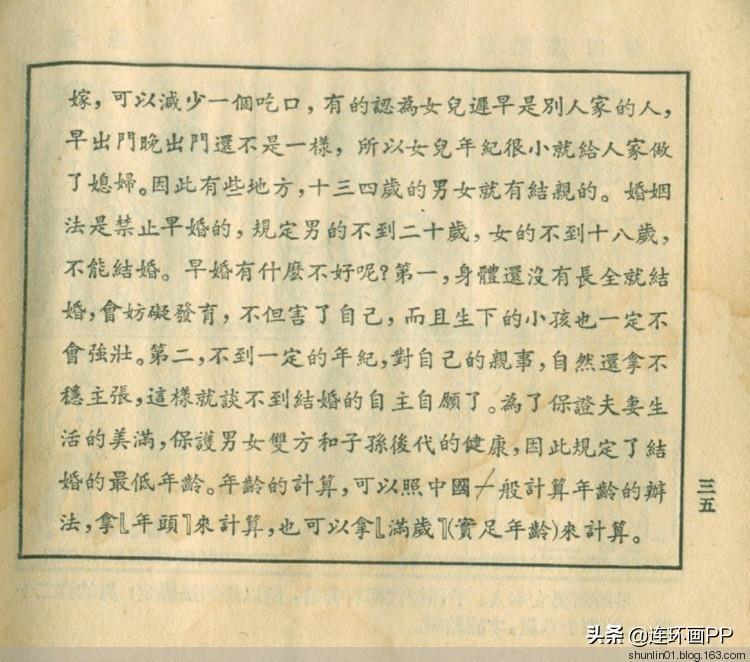 嫁，可以減少一個吃口，有的認為女兒遲早是別人家的人，
早出門晚出門還不是一樣，所以女兒年紀很小就給人家做
了媳婦。因此有些地方，十三四歲的男女就有結親的。婚姻
法是禁止早婚的，規定男的不到二十歲，女的不到十八歲，
不能結婚。早婚有什麼不好呢？第一，身體還沒有長全就結
婚，會妨礙發育，不但害了自己，而且生下的小孩也一定不
會強壯。第二，不到一定的年紀，對自己的親事，自然還拿不
穩主張，這樣就談不到結婚的自主自願了。為了保證夫妻生
活的美滿，保護男女雙方和子孫後代的健康，因此規定了結
婚的最低年齡。年齡的計算，可以照中國一般計算年齡的辦
法，拿「年頭」來計算，也可以拿「滿歲」(實足年齡)來計算。
三五
头条 @连环画PP
shunlin01.blog.163.com